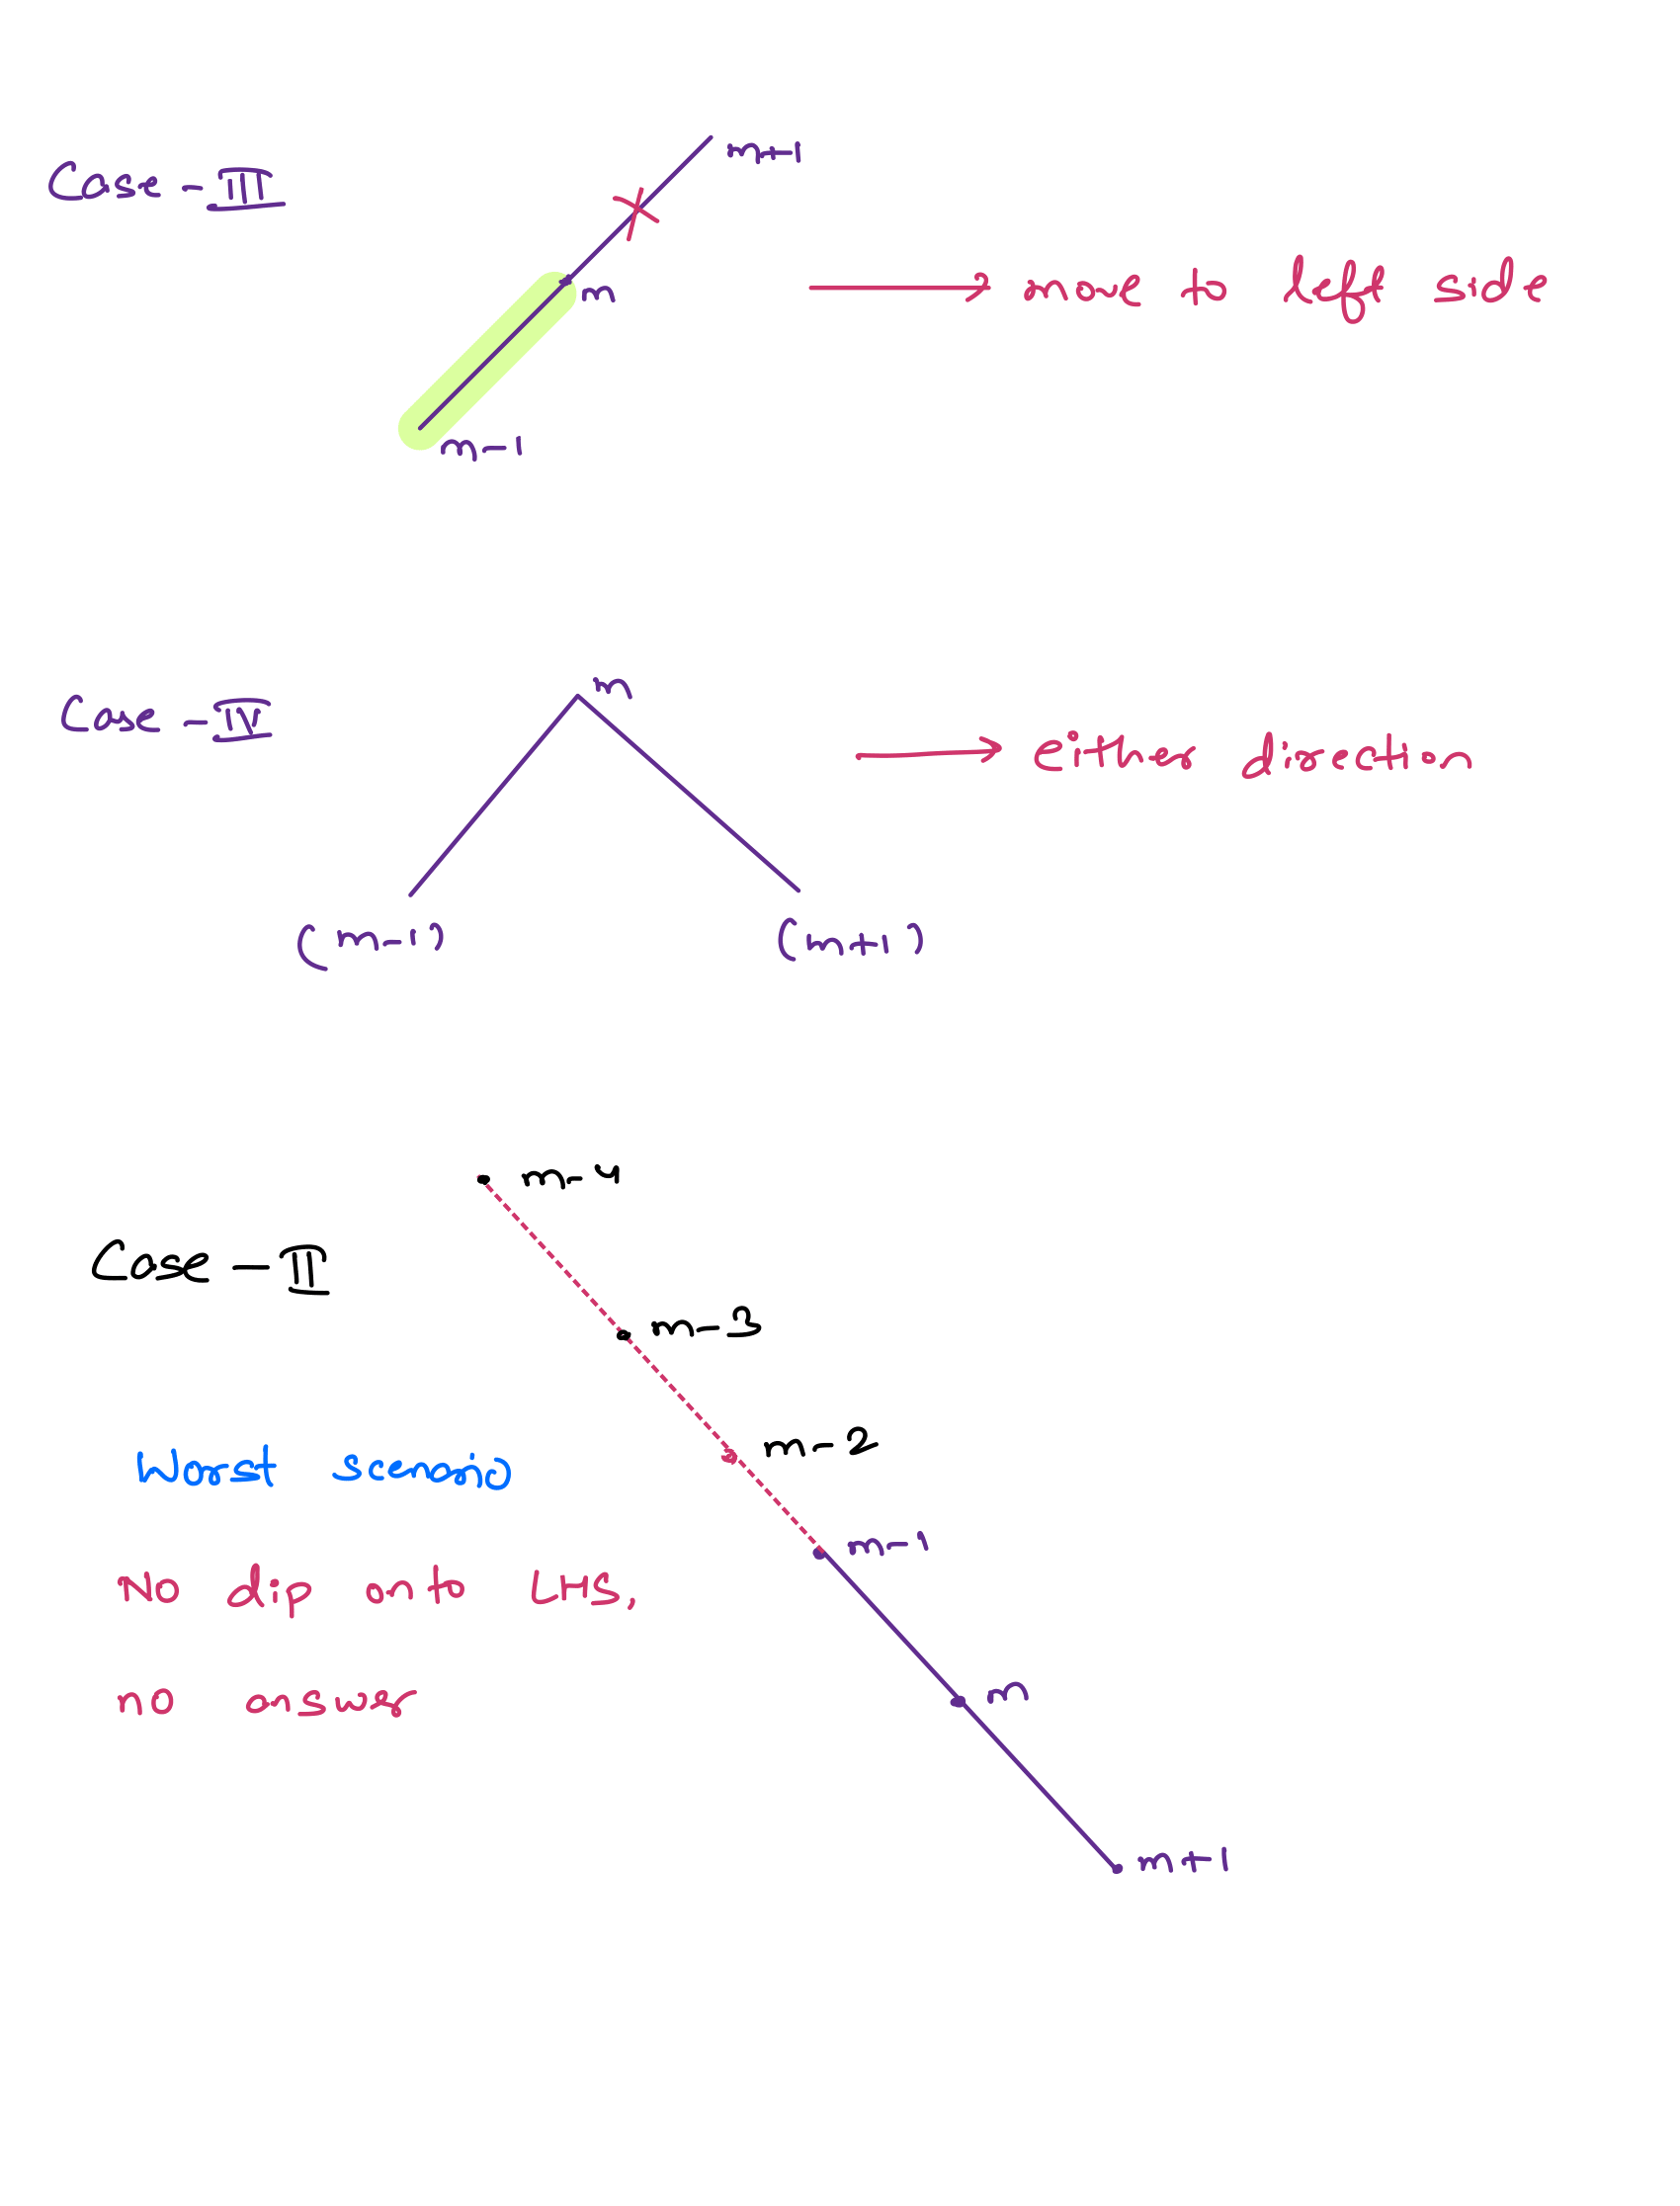 Case - III
m+1
m
→ move to left side
m-1
Case - IV
m
→ either direction
(m-1)
(m+1)
m-4
Case - II
m-3
m-2
Worst scenario
m-1
No dip onto LHS,
m
no answer
m+1